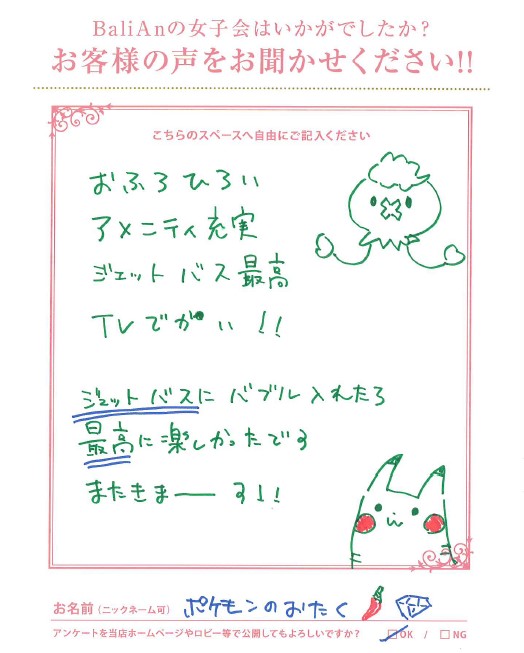 BaliAnの女子会はいかがでしたか?
お客様の声をお聞かせください!!
こちらのスペースへ自由にご記入ください
おふろひろい
アメニティ充実
ジェットバス最高
TVでかい!!
ジェットバスにバブル入れたら
最高に楽しかったです
またきまーーす!!
お名前(ニックネーム可) ポケモンのおたく
アンケートを当店ホームページやロビー等で公開してもよろしいですか? ☑OK / □NG